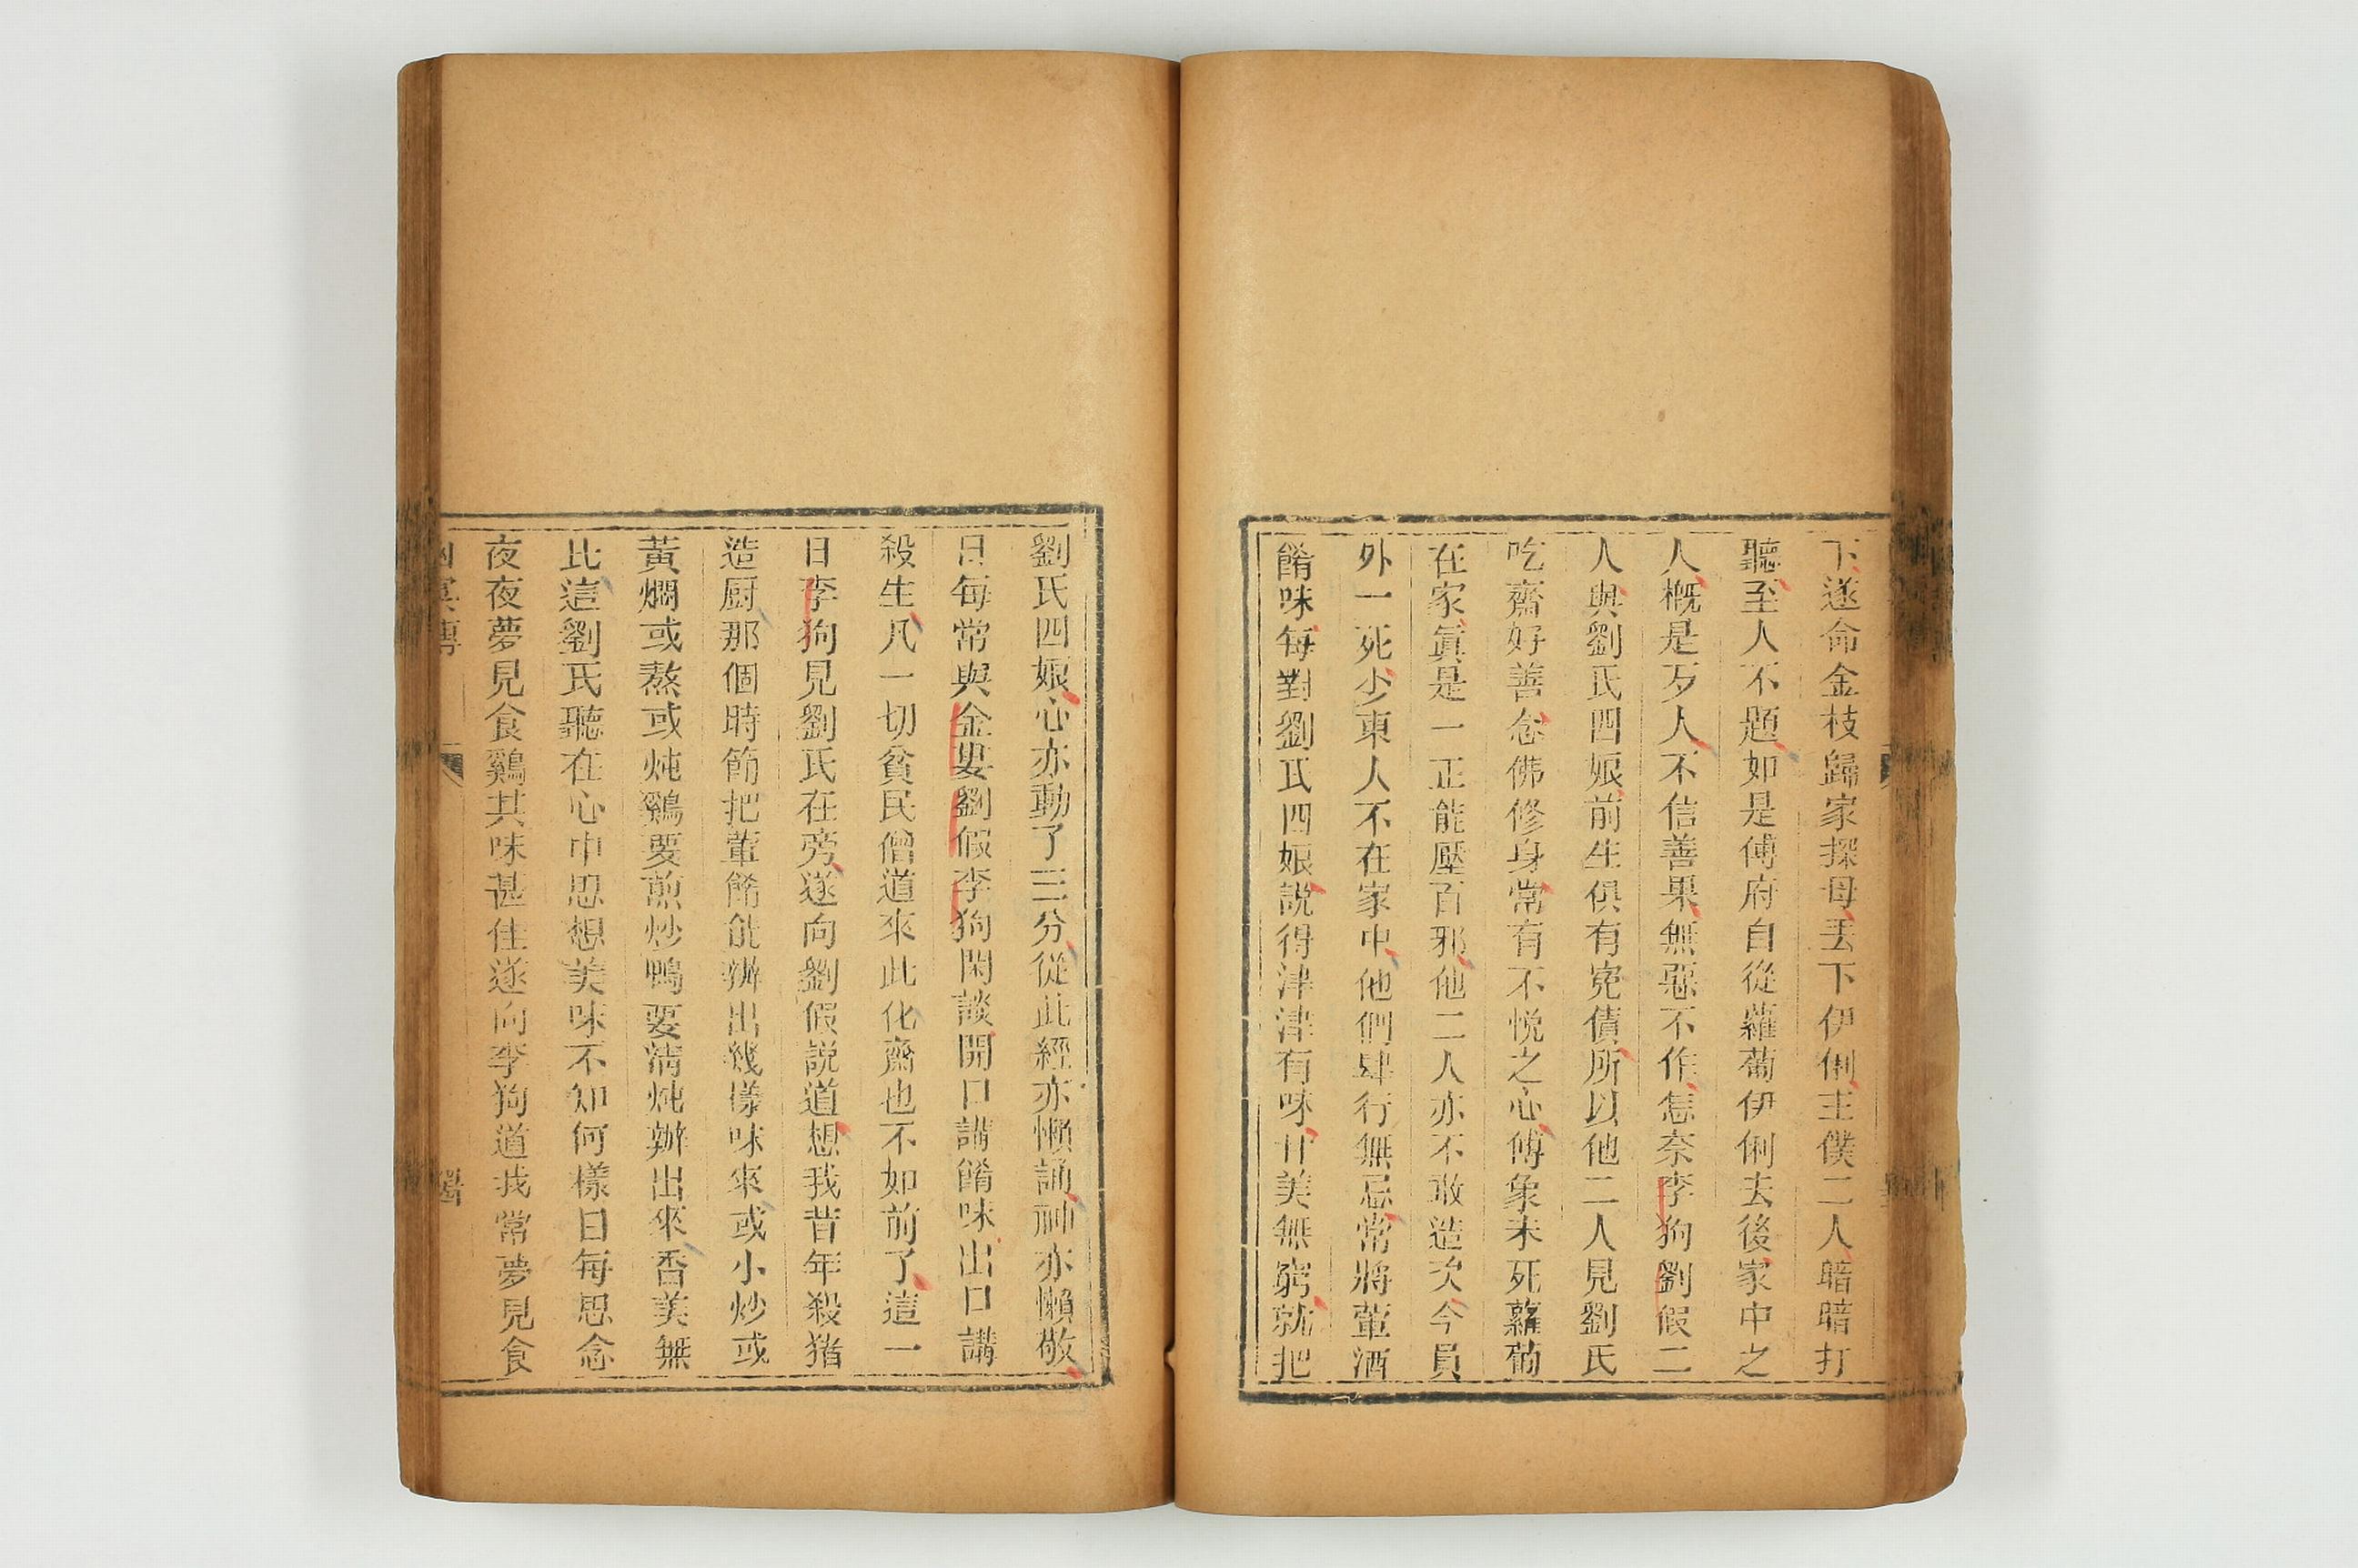 下遂命金枝歸家探母丟下伊俐主僕二人暗暗打
聽至人不題如是傅府自從蘿蔔伊俐去後家中之
人概是歹人不信善果無惡不作怎奈李狗劉假二
人與劉氏四娘前生俱有寃債所以他二人見劉氏
吃齋好善念佛修身常有不悅之心傅象未死蘿蔔
在家眞是一正能壓百邪他二人亦不敢造次今員
外一死少東人不在家中他們肆行無忌常將葷酒
餚味每對劉氏四娘說得津津有味甘美無窮就把
劉氏四娘心亦動了三分從此經亦懶誦神亦懶敬
日每常與金婁劉假李狗閑談開口講餚味出口講
殺生凡一切貧民僧道來此化齋也不如前了這一
日李狗見劉氏在旁遂向劉假說道想我昔年殺猪
造厨那個時節把葷餚能辦出幾樣味來或小炒或
黃燜或熬或炖鷄要煎炒鴨要淸炖辦出來香美無
比這劉氏聽在心中思想美味不知何樣日每思念
夜夜夢見食鷄其味甚佳遂向李狗道我常夢見食
幽冥傳